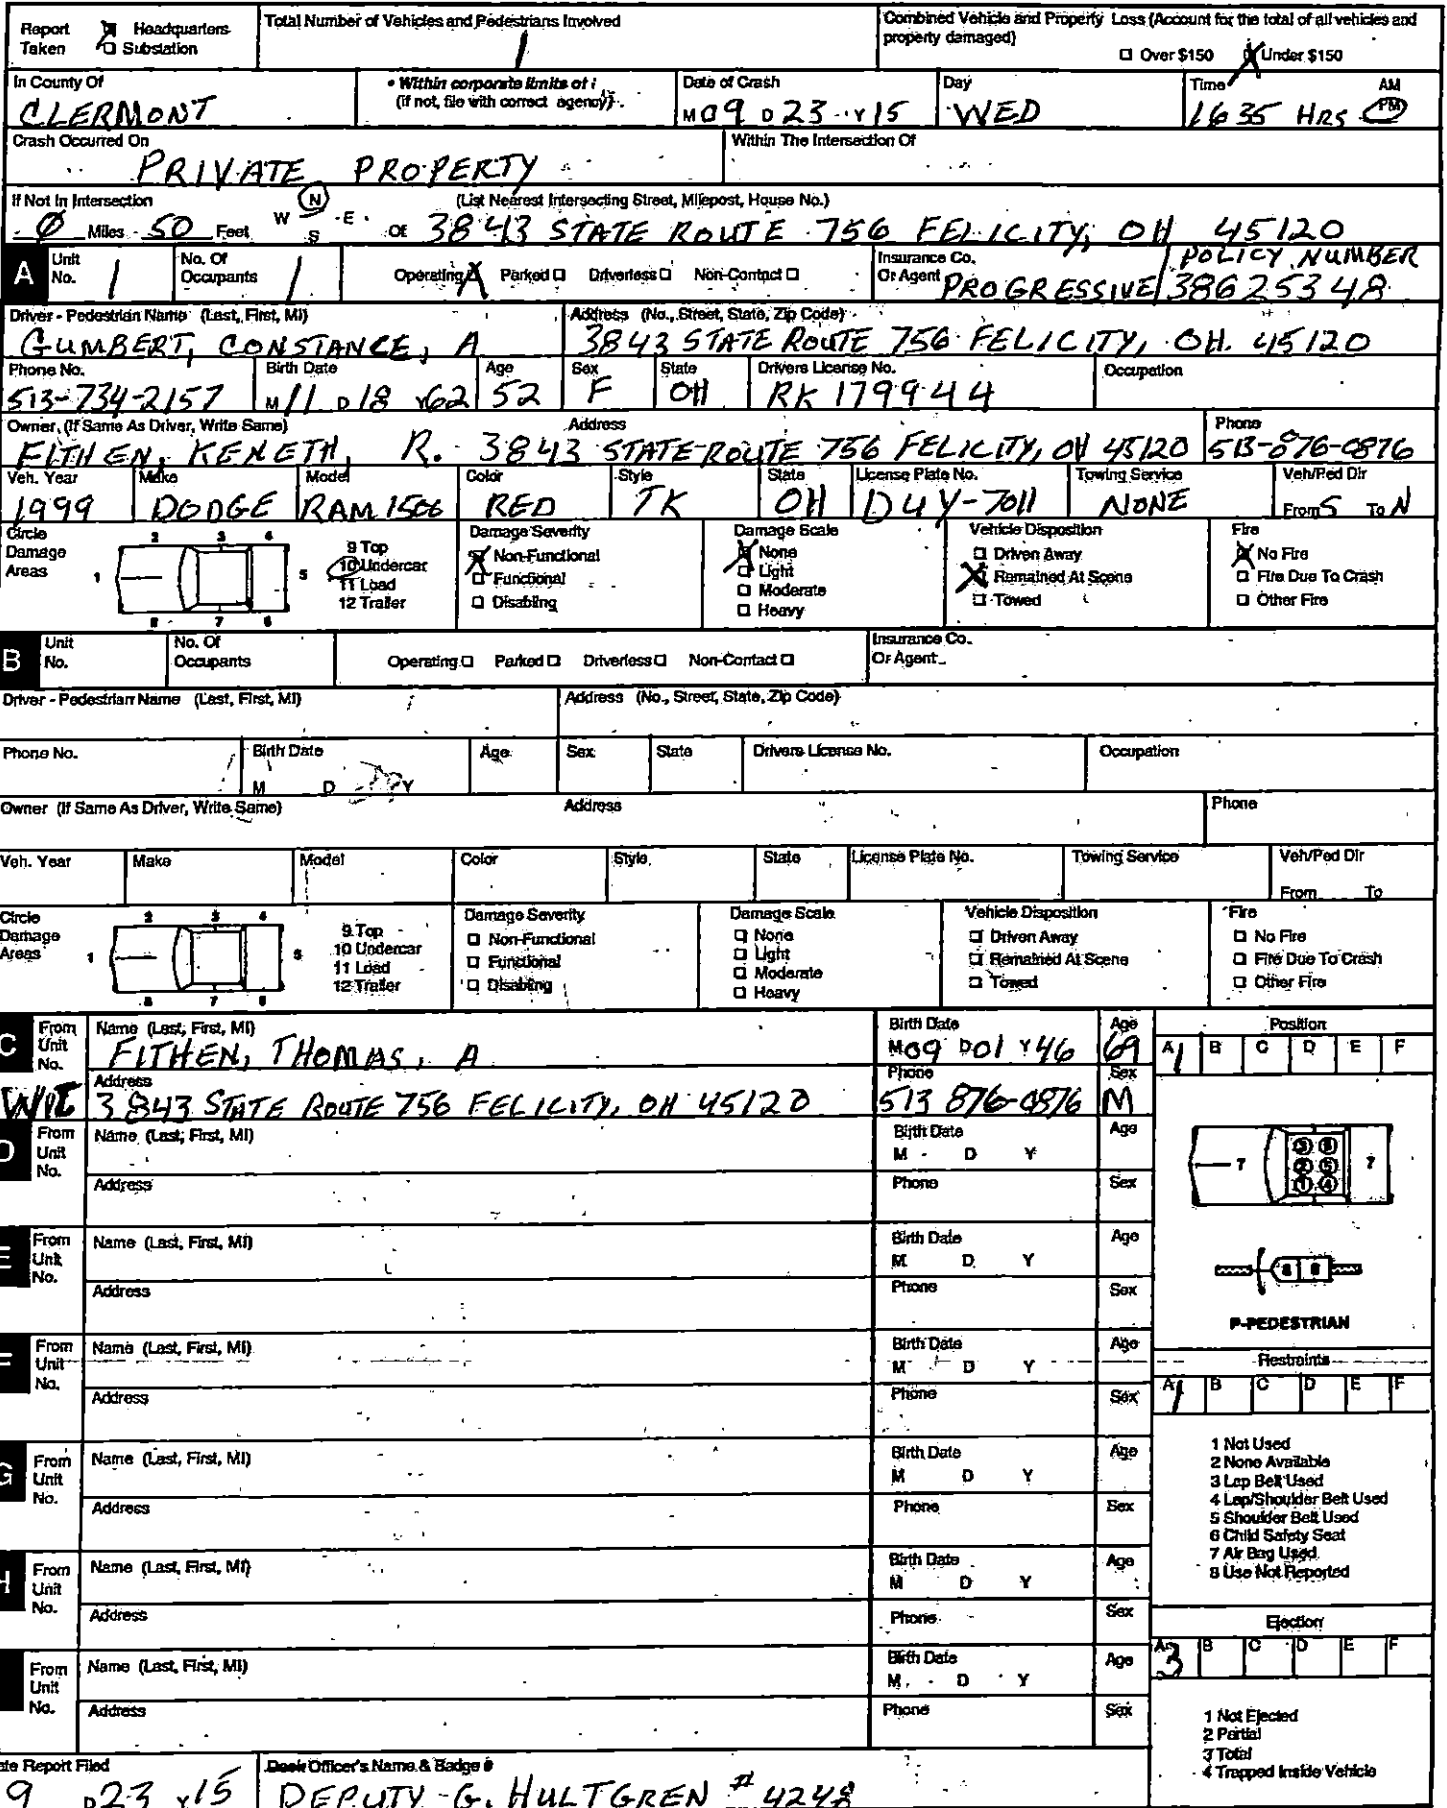 Report Taken ☒ Headquarters ☐ Substation
Total Number of Vehicles and Pedestrians Involved 1
Combined Vehicle and Property Loss (Account for the total of all vehicles and property damaged) ☐ Over $150 ☒ Under $150
In County Of CLERMONT
• Within corporate limits of : (if not, file with correct agency)
Date of Crash M 09 D 23 Y 15
Day WED
Time 1635 HRS AM PM
Crash Occurred On PRIVATE PROPERTY
Within The Intersection Of
If Not In Intersection Ø Miles 50 Feet W N E S OF (List Nearest Intersecting Street, Milepost, House No.) 3843 STATE ROUTE 756 FELICITY, OH 45120
A Unit No. 1 No. Of Occupants 1 Operating ☒ Parked ☐ Driverless ☐ Non-Contact ☐ Insurance Co. Or Agent PROGRESSIVE / POLICY NUMBER 38625348
Driver - Pedestrian Name (Last, First, MI) GUMBERT, CONSTANCE, A
Address (No., Street, State, Zip Code) 3843 STATE ROUTE 756 FELICITY, OH. 45120
Phone No. 513-734-2157 Birth Date M 11 D 18 Y 62 Age 52 Sex F State OH Drivers License No. RK 179944 Occupation
Owner, (If Same As Driver, Write Same) FITHEN, KENETH, R. Address 3843 STATE ROUTE 756 FELICITY, OH 45120 Phone 513-876-0876
Veh. Year 1999 Make DODGE Model RAM 1500 Color RED Style TK State OH License Plate No. Towing Service NONE Veh/Ped Dir From S To N
Circle Damage Areas 1 2 3 4 5 6 7 8 9 Top 10 Undercar 11 Load 12 Trailer
Damage Severity ☒ Non-Functional ☐ Functional ☐ Disabling
Damage Scale ☒ None ☐ Light ☐ Moderate ☐ Heavy
Vehicle Disposition ☐ Driven Away ☒ Remained At Scene ☐ Towed
Fire ☒ No Fire ☐ Fire Due To Crash ☐ Other Fire
B Unit No. No. Of Occupants Operating ☐ Parked ☐ Driverless ☐ Non-Contact ☐ Insurance Co. Or Agent
Driver - Pedestrian Name (Last, First, MI) Address (No., Street, State, Zip Code)
Phone No. Birth Date M D Y Age Sex State Drivers License No. Occupation
Owner (If Same As Driver, Write Same) Address Phone
Veh. Year Make Model Color Style State License Plate No. Towing Service Veh/Ped Dir From To
Circle Damage Areas 1 2 3 4 5 6 7 8 9 Top 10 Undercar 11 Load 12 Trailer
Damage Severity ☐ Non-Functional ☐ Functional ☐ Disabling
Damage Scale ☐ None ☐ Light ☐ Moderate ☐ Heavy
Vehicle Disposition ☐ Driven Away ☐ Remained At Scene ☐ Towed
Fire ☐ No Fire ☐ Fire Due To Crash ☐ Other Fire
C From Unit No. WIT Name (Last, First, MI) FITHEN, THOMAS, A Birth Date M 09 D 01 Y 46 Age 69
Address 3843 STATE ROUTE 756 FELICITY, OH 45120 Phone 513 876-0876 Sex M
Position A 1 B C D E F
D From Unit No. Name (Last, First, MI) Birth Date M D Y Age
Address Phone Sex
7 3 6 2 5 1 4 7
E From Unit No. Name (Last, First, MI) Birth Date M D Y Age
Address Phone Sex
8 8
P-PEDESTRIAN
F From Unit No. Name (Last, First, MI) Birth Date M D Y Age
Address Phone Sex
Restraints A 1 B C D E F
1 Not Used
2 None Available
3 Lap Belt Used
4 Lap/Shoulder Belt Used
5 Shoulder Belt Used
6 Child Safety Seat
7 Air Bag Used
8 Use Not Reported
G From Unit No. Name (Last, First, MI) Birth Date M D Y Age
Address Phone Sex
H From Unit No. Name (Last, First, MI) Birth Date M D Y Age
Address Phone Sex
Ejection A 3 B C D E F
From Unit No. Name (Last, First, MI) Birth Date M D Y Age
Address Phone Sex
1 Not Ejected
2 Partial
3 Total
4 Trapped Inside Vehicle
ate Report Filed 9 D 23 Y 15
Desk Officer's Name & Badge # DEPUTY G. HULTGREN # 4248